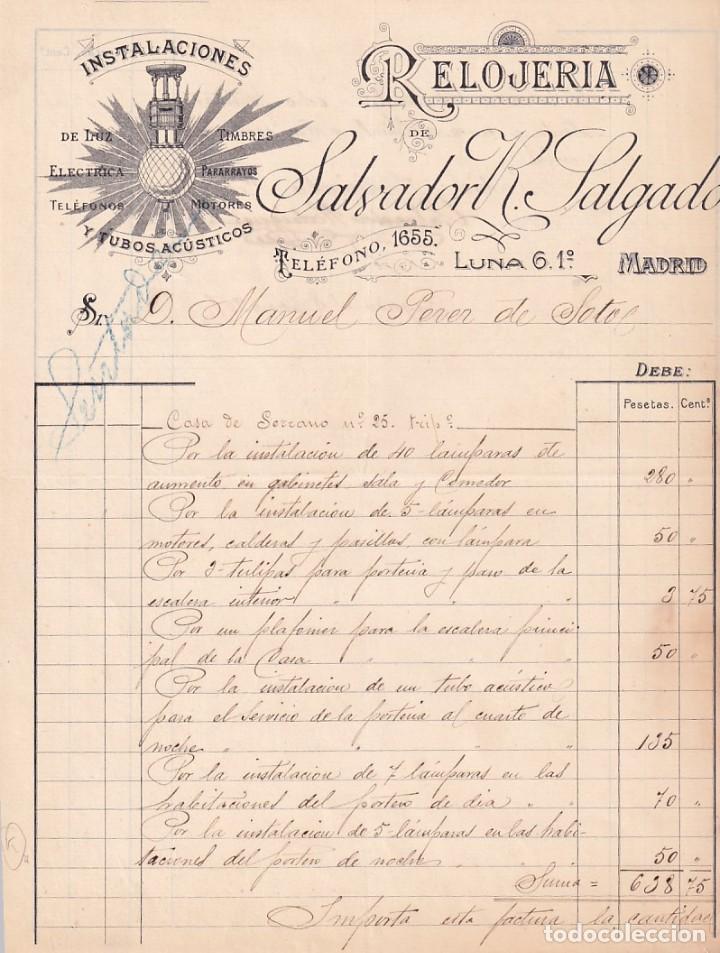 INSTALACIONES
DE LUZ
TIMBRES
ELECTRICA
PARARRAYOS
TELÉFONOS
MOTORES
Y TUBOS ACÚSTICOS
RELOJERIA
DE
Salvador R. Salgado
TELÉFONO, 1655.
LUNA 6. 1º
MADRID
Sr. D. Manuel Perez de Soto
DEBE:
Pesetas. Centº
Casa de Serrano nº 25.
Por la instalacion de 40 lámparas de
aumento en gabinetes sala y Comedor 280 "
Por la instalacion de 5 lámparas en
motores, calderas y pasillos, con lámpara 50 "
Por 3 tulipas para porteria y paso de la
escalera interior " " " 3 75
Por un plafonier para la escalera princi
pal de la Casa " " " 50 "
Por la instalacion de un tubo acústico
para el servicio de la porteria al cuarto de
noche " " " " 135
Por la instalacion de 7 lámparas en las
habitaciones del portero de dia " " 70 "
Por la instalacion de 5 lámparas en las habi-
taciones del portero de noche " " 50 "
Suma = 638 75
Importa esta factura la cantidad
todocoleccion.net